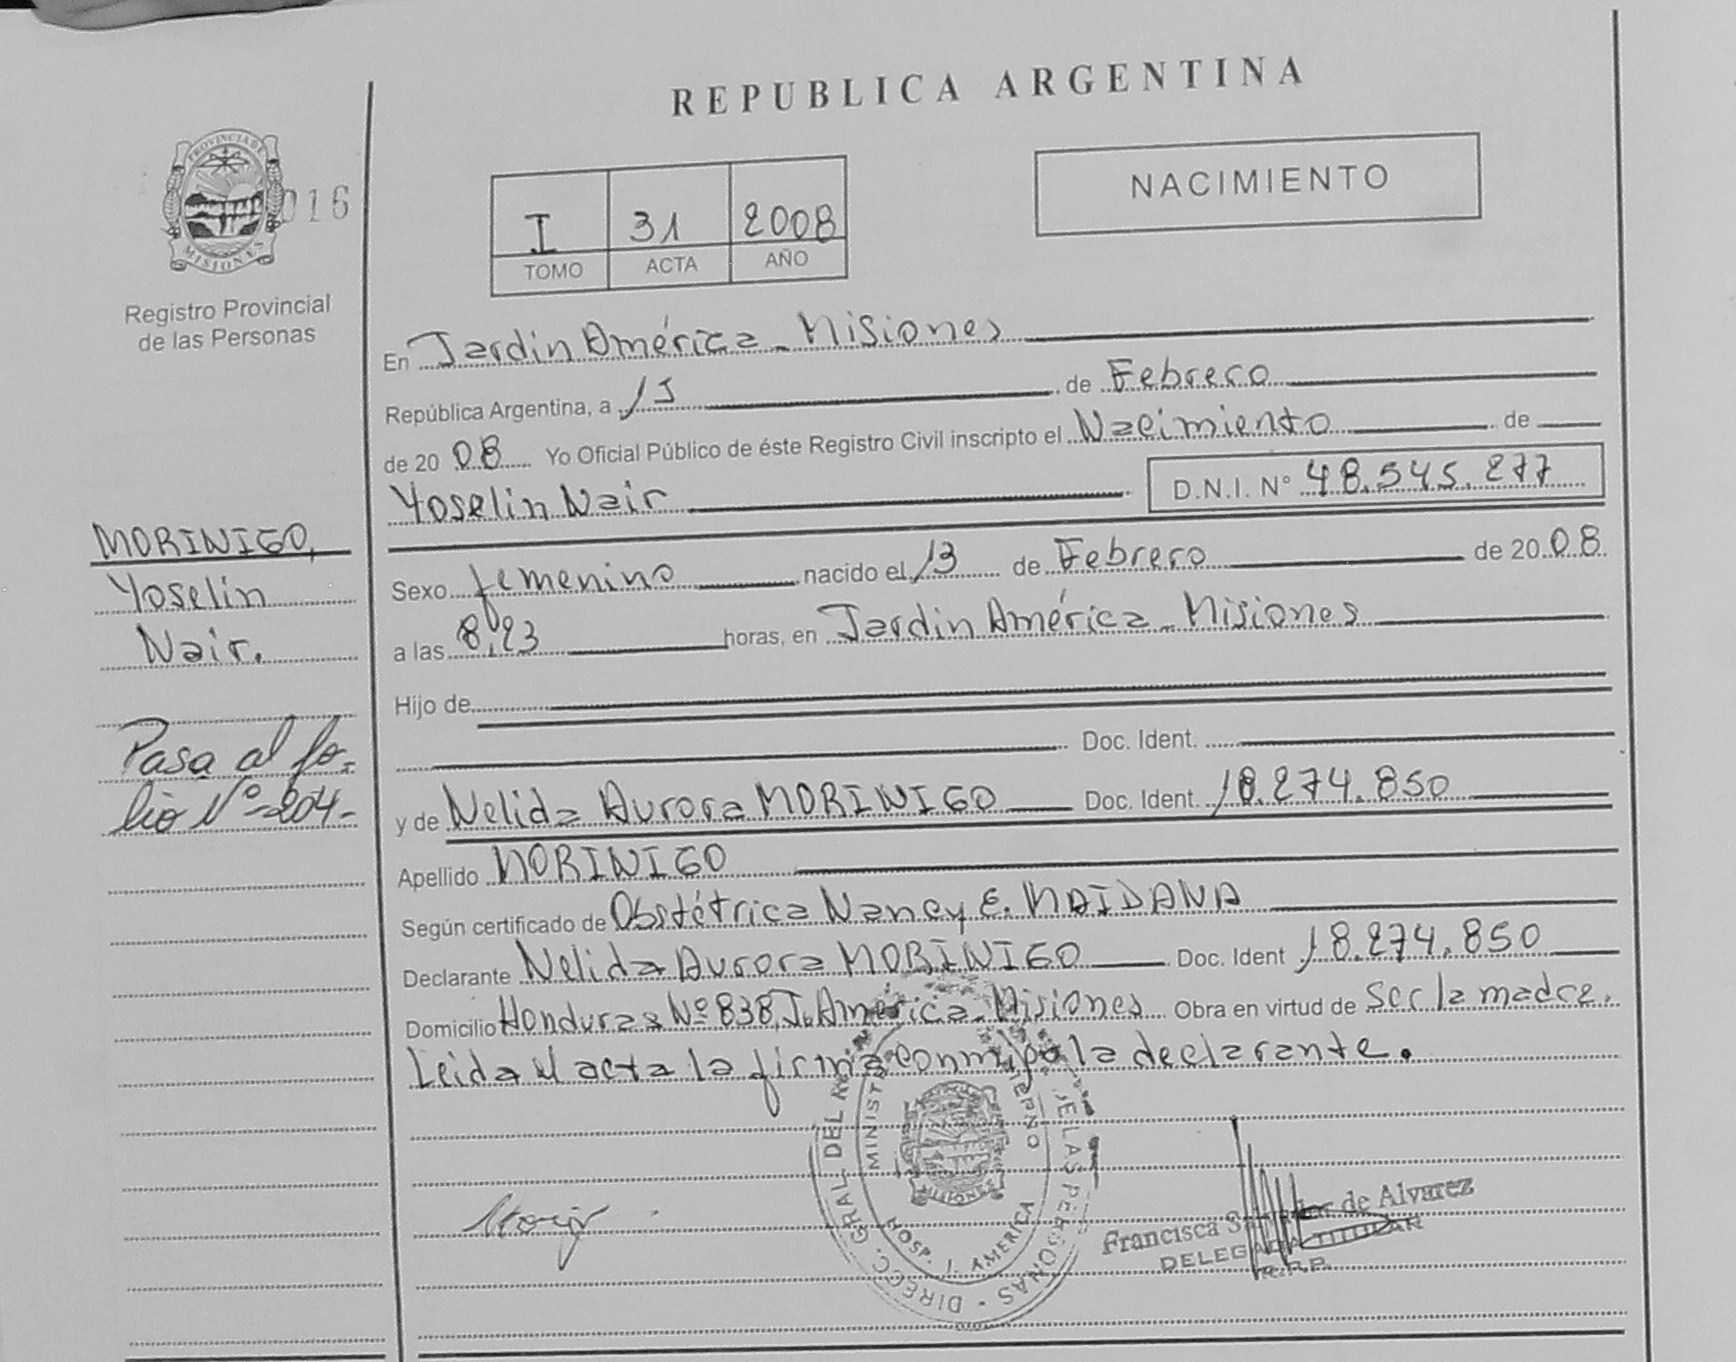 REPUBLICA ARGENTINA
PROVINCIA DE
MISIONES
016
Registro Provincial
de las Personas
NACIMIENTO
I 31 2008
TOMO ACTA AÑO
En Jardin América - Misiones
República Argentina, a 15 de Febrero
de 20 08 Yo Oficial Público de éste Registro Civil inscripto el Nacimiento de
Yoselin Nair D.N.I. N° 48.545.277
MORINIGO,
Yoselin
Nair.
Pasa al fo-
lio Nº 204-
Sexo femenino nacido el 13 de Febrero de 20 08
a las 8,23 horas, en Jardin América - Misiones
Hijo de
Doc. Ident.
y de Nelida Aurora MORINIGO Doc. Ident. 18.274.850
Apellido MORINIGO
Según certificado de Obstétrica Nancy E. MAIDANA
Declarante Nelida Aurora MORINIGO Doc. Ident 18.274.850
Domicilio Honduras Nº 838, J. América - Misiones Obra en virtud de ser la madre.
Leida el acta la firma conmigo la declarante.
DIRECC. GRAL. DEL DE LAS PERSONAS
HOSP. J. AMERICA
MISIONES
Francisca de Alvarez
DELEGADA TITULAR
R.P.P.